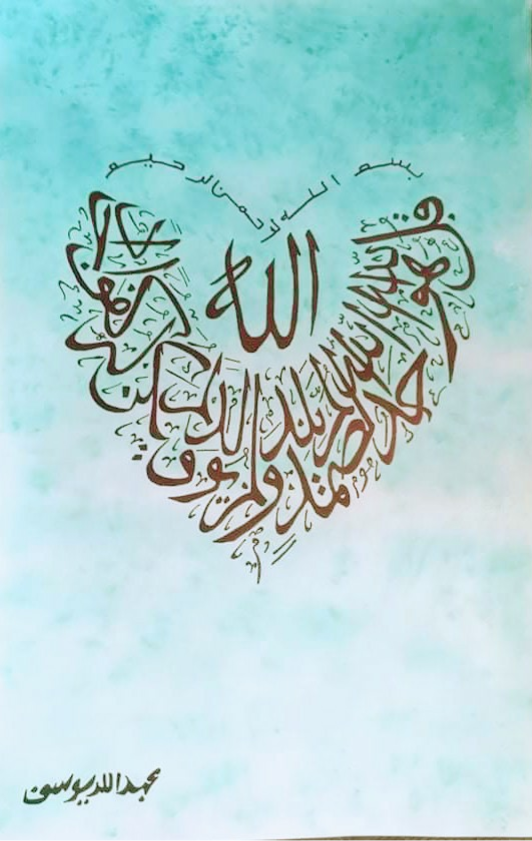 بسم الله الرحمن الرحيم
الله
قل هو الله احد الله الصمد لم يلد ولم يولد ولم يكن له كفوا احد
عبدالله يوسف